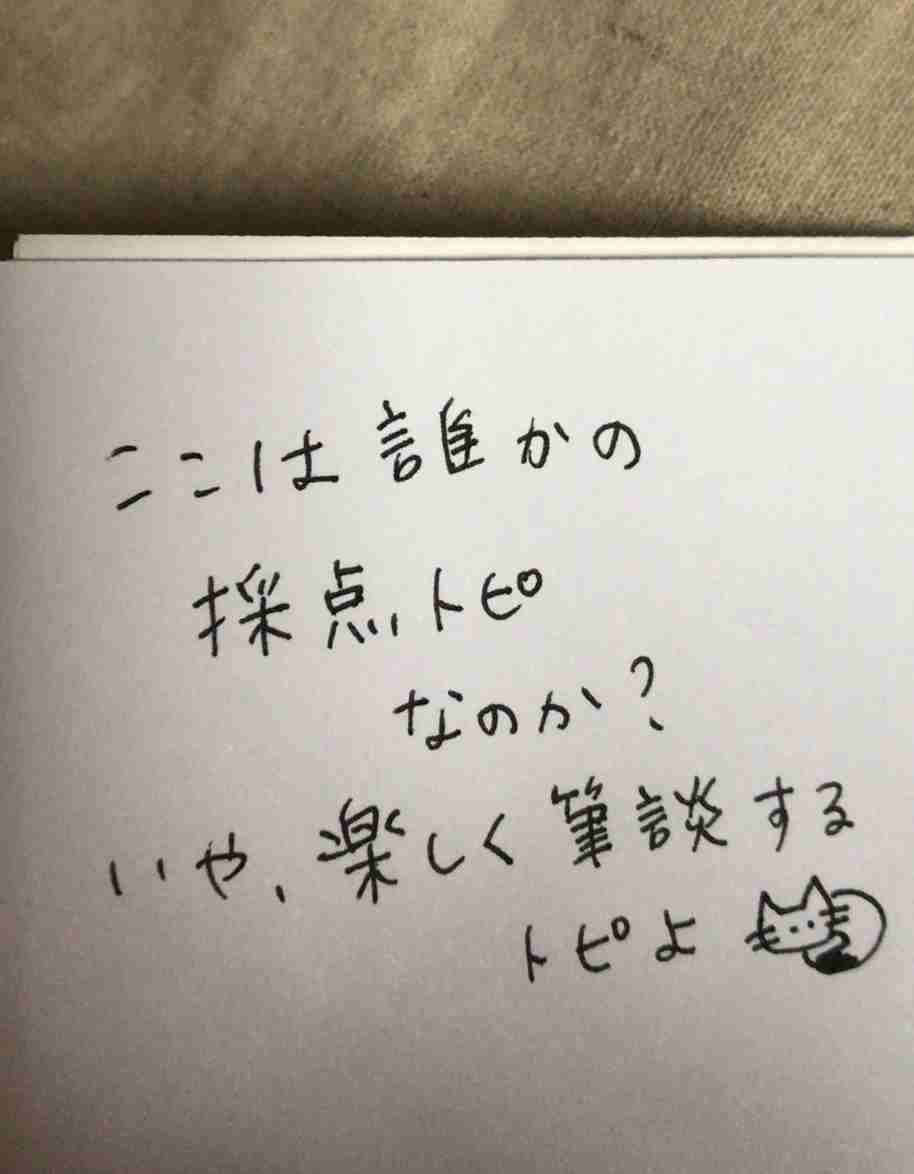 ここは誰かの
採点トピ
なのか?
いや、楽しく筆談する
トピよ